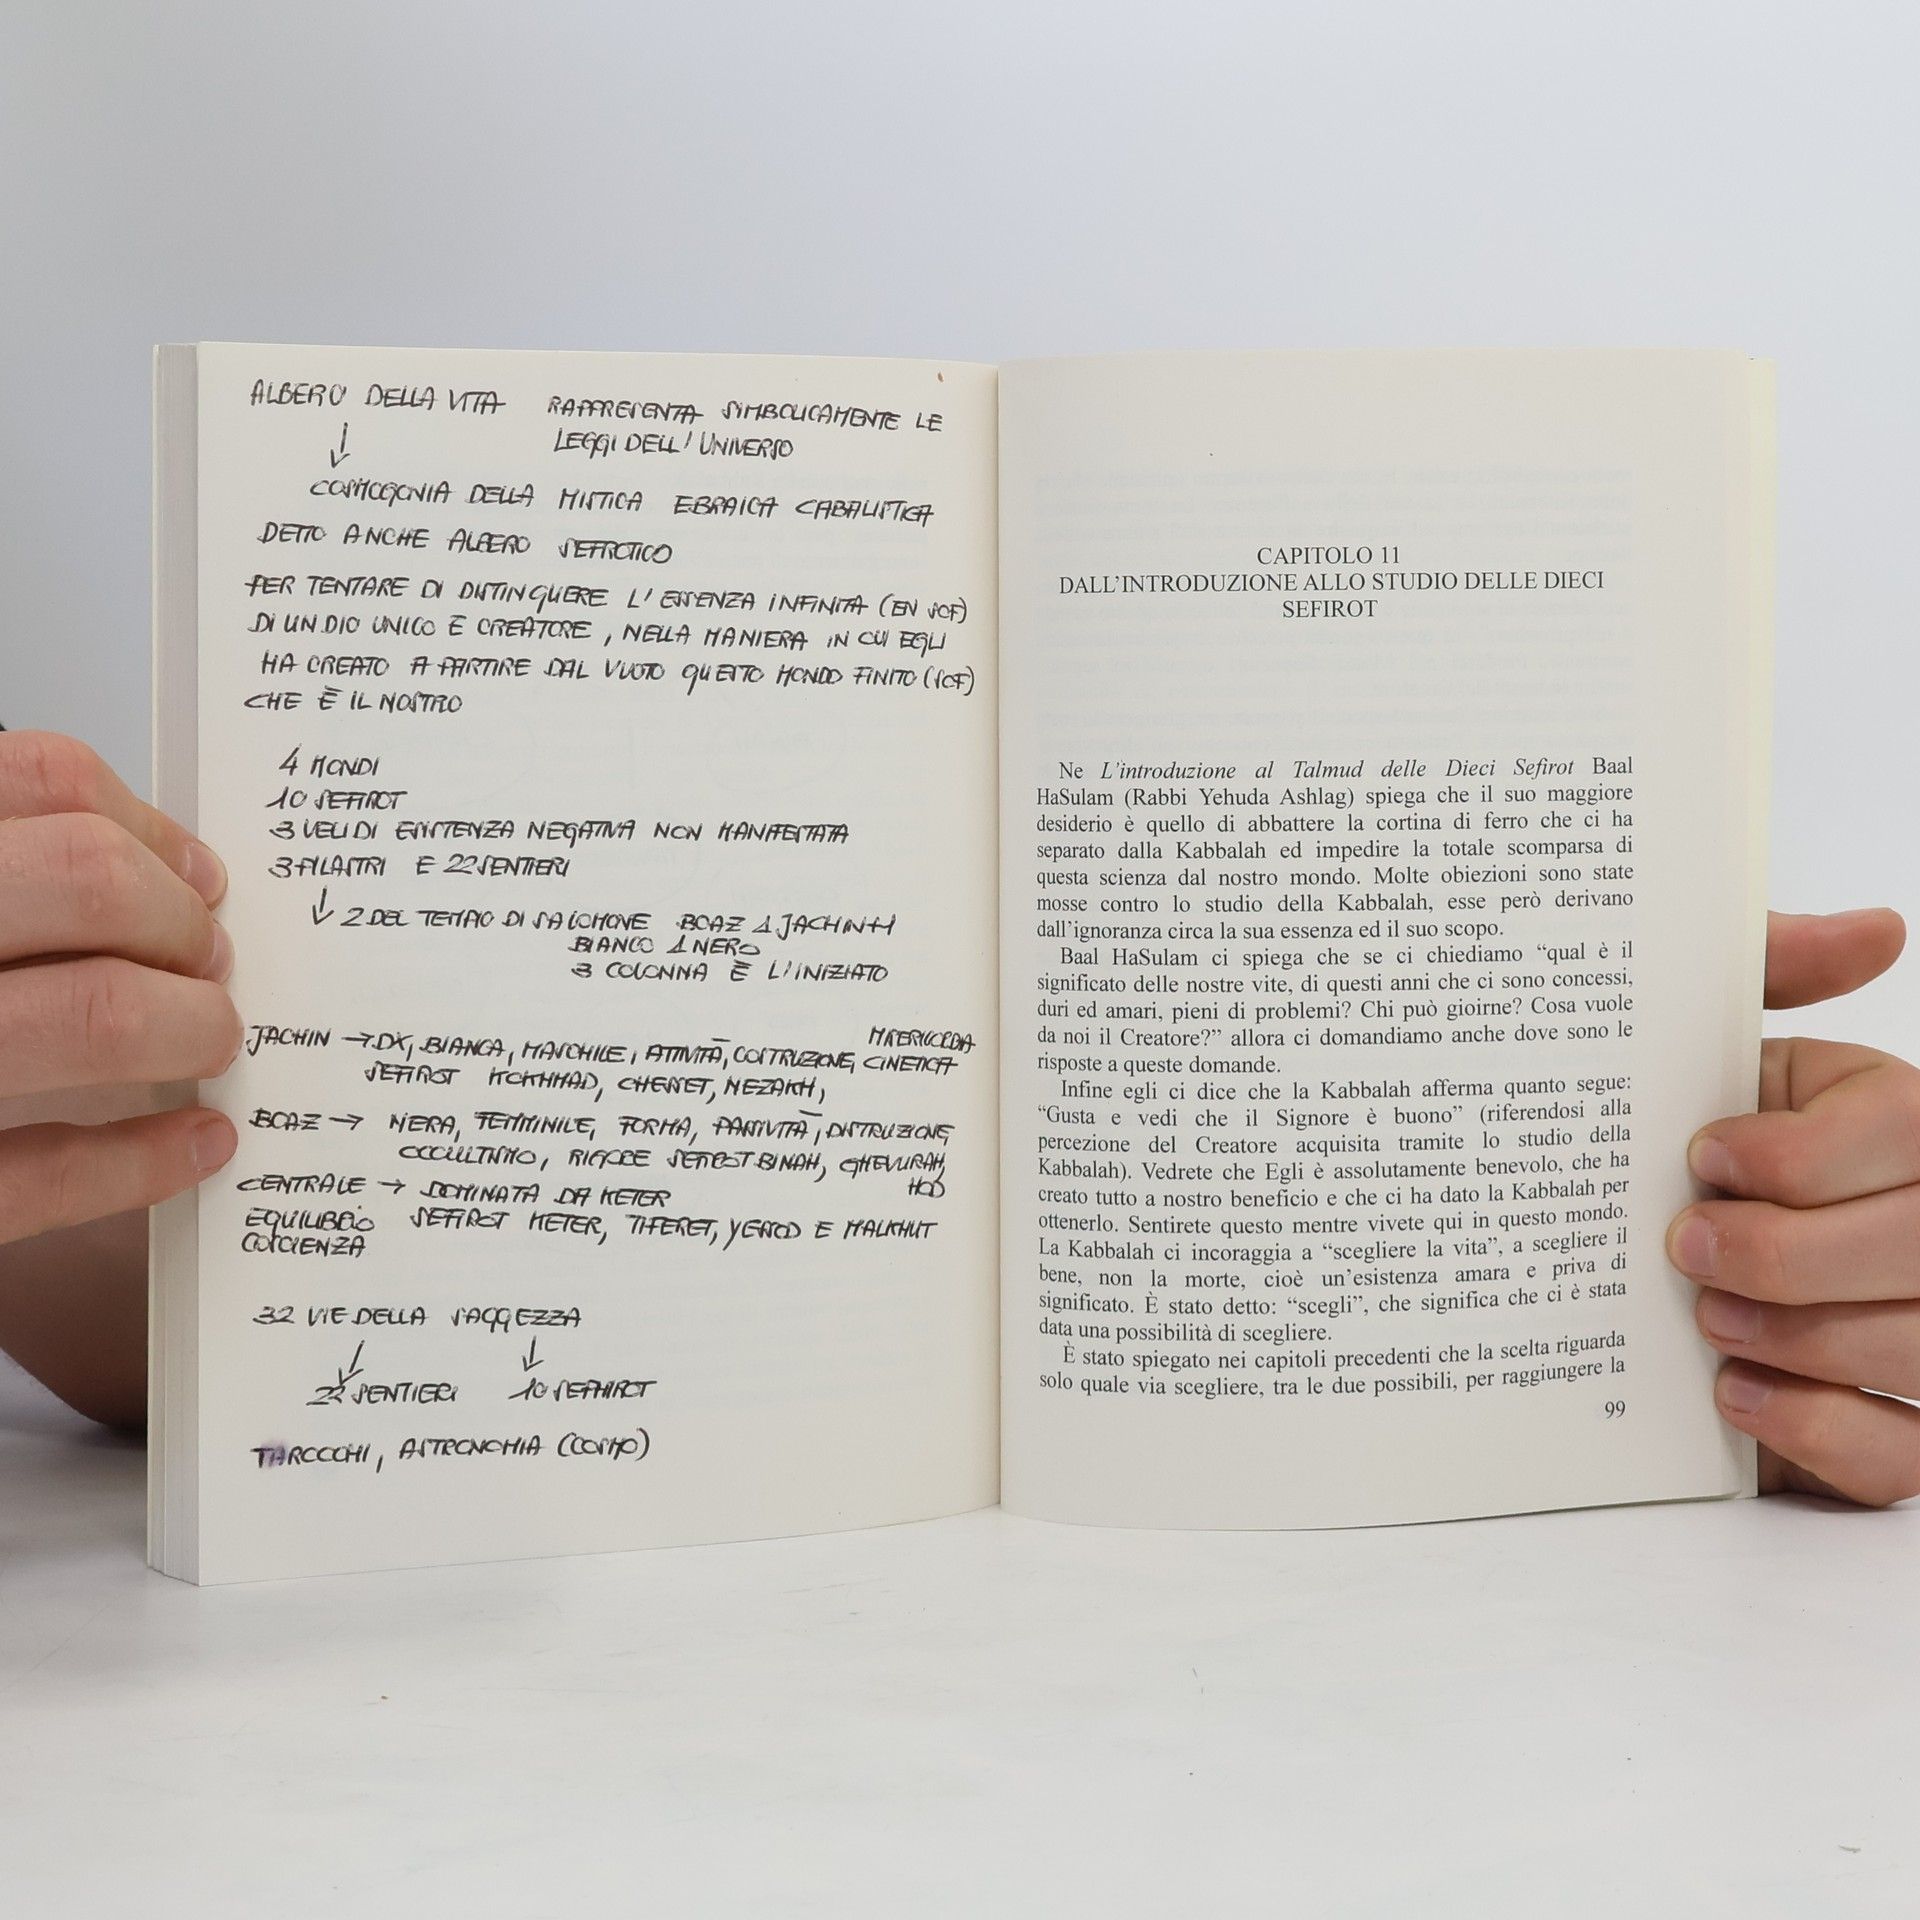 ALBERO DELLA VITA RAPPRESENTA SIMBOLICAMENTE LE
LEGGI DELL'UNIVERSO
↓
COSMOGONIA DELLA MISTICA EBRAICA CABALISTICA
DETTO ANCHE ALBERO SEFIROTICO
PER TENTARE DI DISTINGUERE L'ESSENZA INFINITA (EN SOF)
DI UN DIO UNICO E CREATORE, NELLA MANIERA IN CUI EGLI
HA CREATO A PARTIRE DAL VUOTO QUESTO MONDO FINITO (SOF)
CHE È IL NOSTRO
4 MONDI
10 SEFIROT
3 VELI DI ESISTENZA NEGATIVA NON MANIFESTATA
3 PILASTRI E 22 SENTIERI
↓ 2 DEL TEMPIO DI SALOMONE BOAZ 1 JACHIN +1
BIANCO 1 NERO
3 COLONNA È L'INIZIATO
MISERICORDIA
JACHIN → DX, BIANCA, MASCHILE, ATTIVITÀ, COSTRUZIONE, CINETICA
SEFIROT HOKHMAD, CHESSET, NEZAKH,
BOAZ → NERA, FEMMINILE, FORMA, PASSIVITÀ, DISTRUZIONE,
OCCULTISMO, RIGORE SEFIROT BINAH, GHEVURAH,
HOD
CENTRALE → DOMINATA DA KETER
EQUILIBRIO SEFIROT KETER, TIFERET, YESOD E MALKHUT
COSCIENZA
32 VIE DELLA SAGGEZZA
↓ ↓
22 SENTIERI 10 SEPHIROT
TAROCCHI, ASTRONOMIA (COSMO)
CAPITOLO 11
DALL'INTRODUZIONE ALLO STUDIO DELLE DIECI
SEFIROT
Ne L'introduzione al Talmud delle Dieci Sefirot Baal
HaSulam (Rabbi Yehuda Ashlag) spiega che il suo maggiore
desiderio è quello di abbattere la cortina di ferro che ci ha
separato dalla Kabbalah ed impedire la totale scomparsa di
questa scienza dal nostro mondo. Molte obiezioni sono state
mosse contro lo studio della Kabbalah, esse però derivano
dall'ignoranza circa la sua essenza ed il suo scopo.
Baal HaSulam ci spiega che se ci chiediamo "qual è il
significato delle nostre vite, di questi anni che ci sono concessi,
duri ed amari, pieni di problemi? Chi può gioirne? Cosa vuole
da noi il Creatore?" allora ci domandiamo anche dove sono le
risposte a queste domande.
Infine egli ci dice che la Kabbalah afferma quanto segue:
"Gusta e vedi che il Signore è buono" (riferendosi alla
percezione del Creatore acquisita tramite lo studio della
Kabbalah). Vedrete che Egli è assolutamente benevolo, che ha
creato tutto a nostro beneficio e che ci ha dato la Kabbalah per
ottenerlo. Sentirete questo mentre vivete qui in questo mondo.
La Kabbalah ci incoraggia a "scegliere la vita", a scegliere il
bene, non la morte, cioè un'esistenza amara e priva di
significato. È stato detto: "scegli", che significa che ci è stata
data una possibilità di scegliere.
È stato spiegato nei capitoli precedenti che la scelta riguarda
solo quale via scegliere, tra le due possibili, per raggiungere la
99